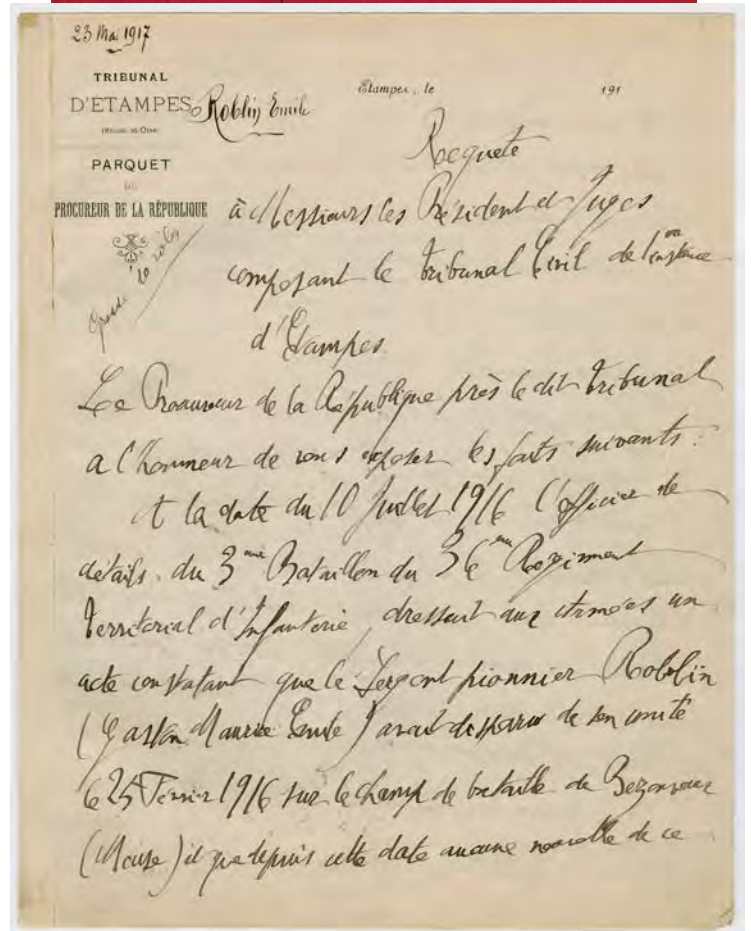 23 Mai 1917
TRIBUNAL
D'ÉTAMPES
Roblin Emile
Étampes, le 191
PARQUET
DU
PROCUREUR DE LA RÉPUBLIQUE
Requête
à Messieurs les Président et Juges
composant le tribunal Civil de 1ère instance
d'Etampes
Le Procureur de la République près le dit tribunal
a l'honneur de vous exposer les faits suivants :
A la date du 10 Juillet 1916 l'officier de
détails du 3eme Bataillon du 36eme Regiment
territorial d'Infanterie, dressait aux Armées un
acte constatant que le Sergent pionnier Roblin
(Gaston Maurice Emile) avait disparu de son unité
le 25 Février 1916 sur le champ de bataille de Bezonvaux
(Meuse) et que depuis cette date aucune nouvelle de ce